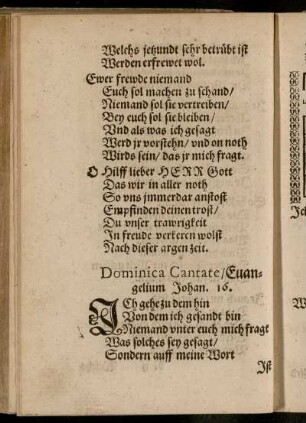 Welchs jetzundt sehr betrübt ist
Werden erfrewet wol.
Ewer frewde niemand
Euch sol machen zu schand/
Niemand sol sie vertreiben/
Bey euch sol sie bleiben/
Vnd als was ich gesagt
Werd jr vorstehn/ vnd on noth
Wirds sein/ das jr mich fragt.
O Hilff lieber HERR Gott
Das wir in aller noth
So vns jmmerdar anstost
Empfinden deinen trost/
Du vnser trawrigkeit
In freude verkeren wolst
Nach dieser argen zeit.
Dominica Cantate/ Euan-
gelium Johan. 16.
ICh gehe zu dem hin
Von dem ich gesandt bin
Niemand vnter euch mich fragt
Was solches sey gesagt/
Sondern auff meine Wort
Ist